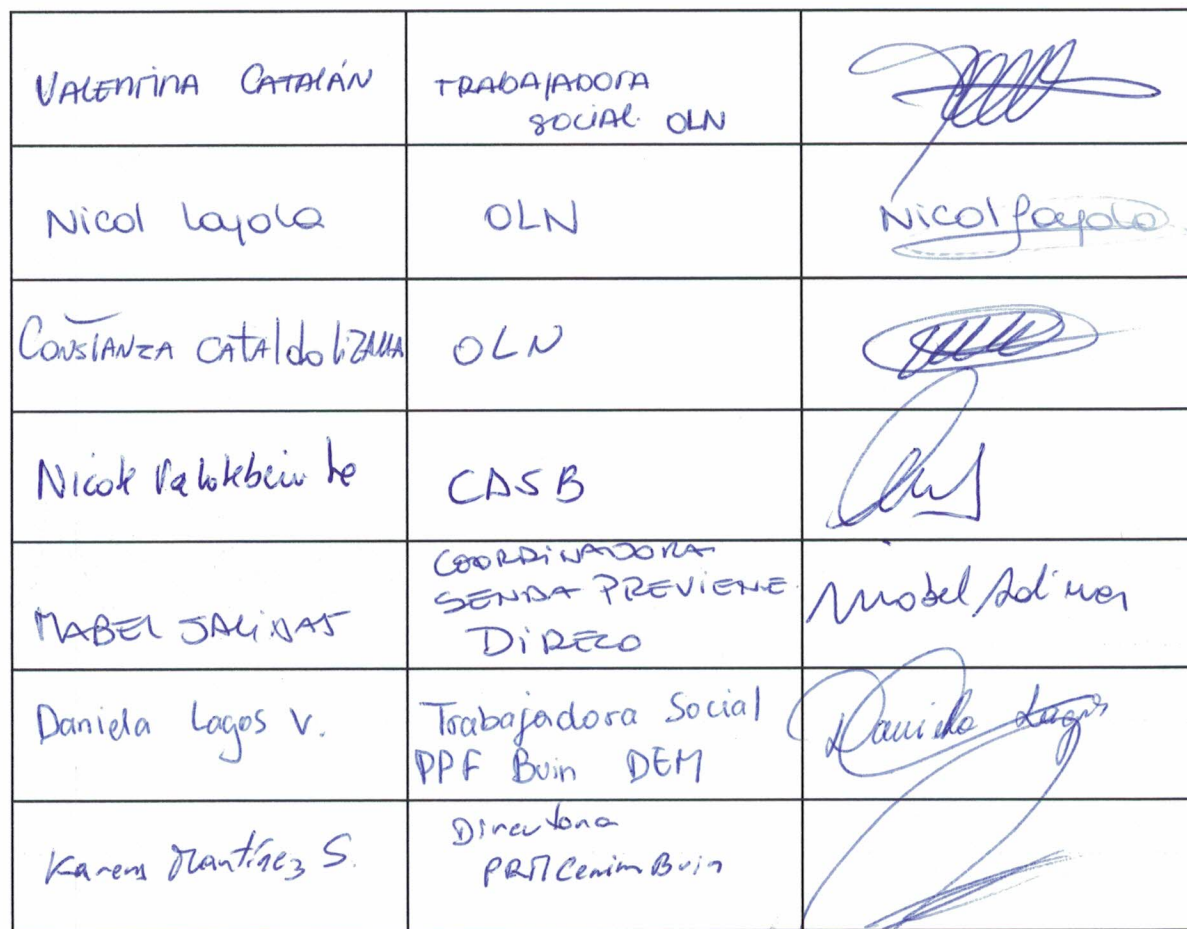 VALENTINA CATALÁN
TRABAJADORA
SOCIAL OLN
Nicol Loyola
OLN
Nicol Loyola
CONSTANZA CATALDO LIZANA
OLN
Nicole
CDSB
MABEL SALINAS
COORDINADORA
SENDA PREVIENE
DIDECO
Mabel Salinas
Daniela Lagos V.
Trabajadora Social
PPF Buin DEM
Daniela Lagos
Karens Martínez S.
Directora
PRM Cenim Buin